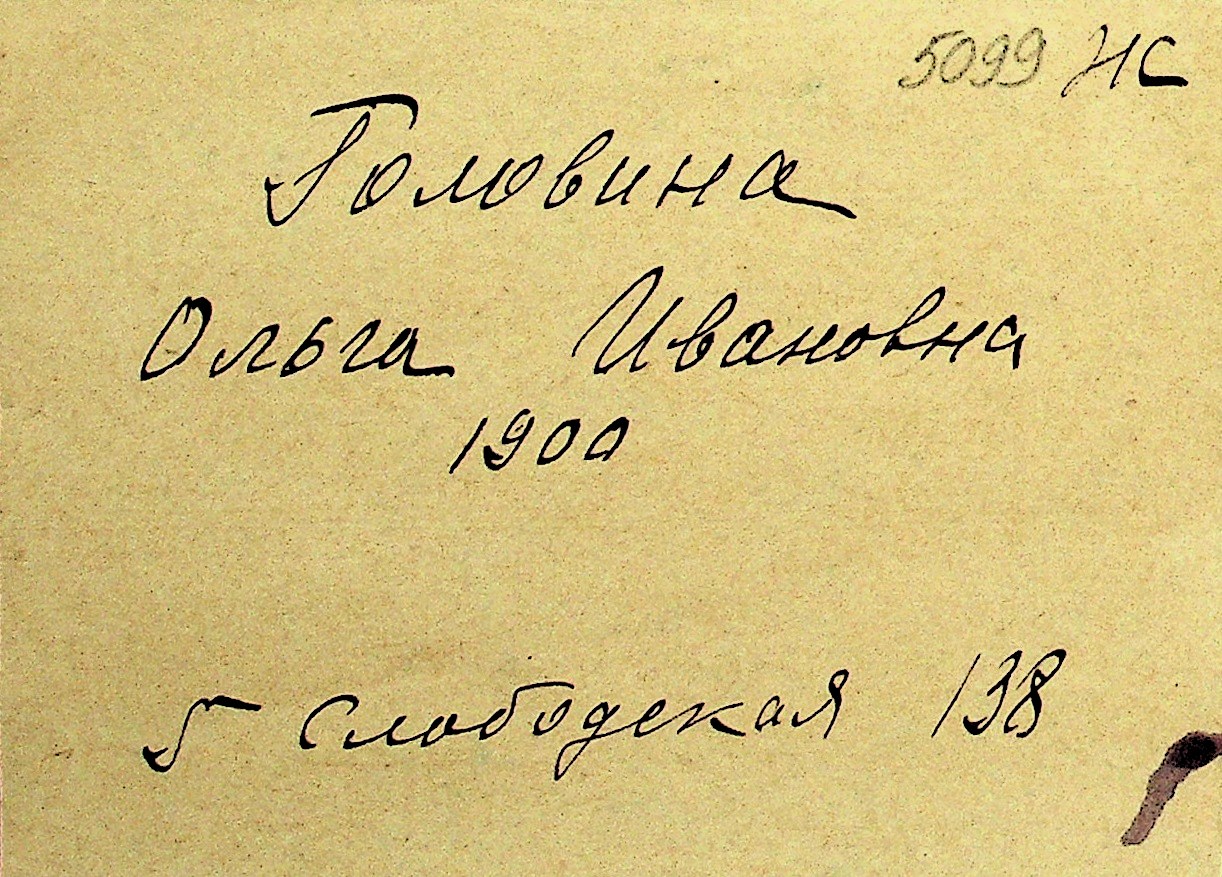 5099 НС
Головина
Ольга Ивановна
1900
5 Слободская 138